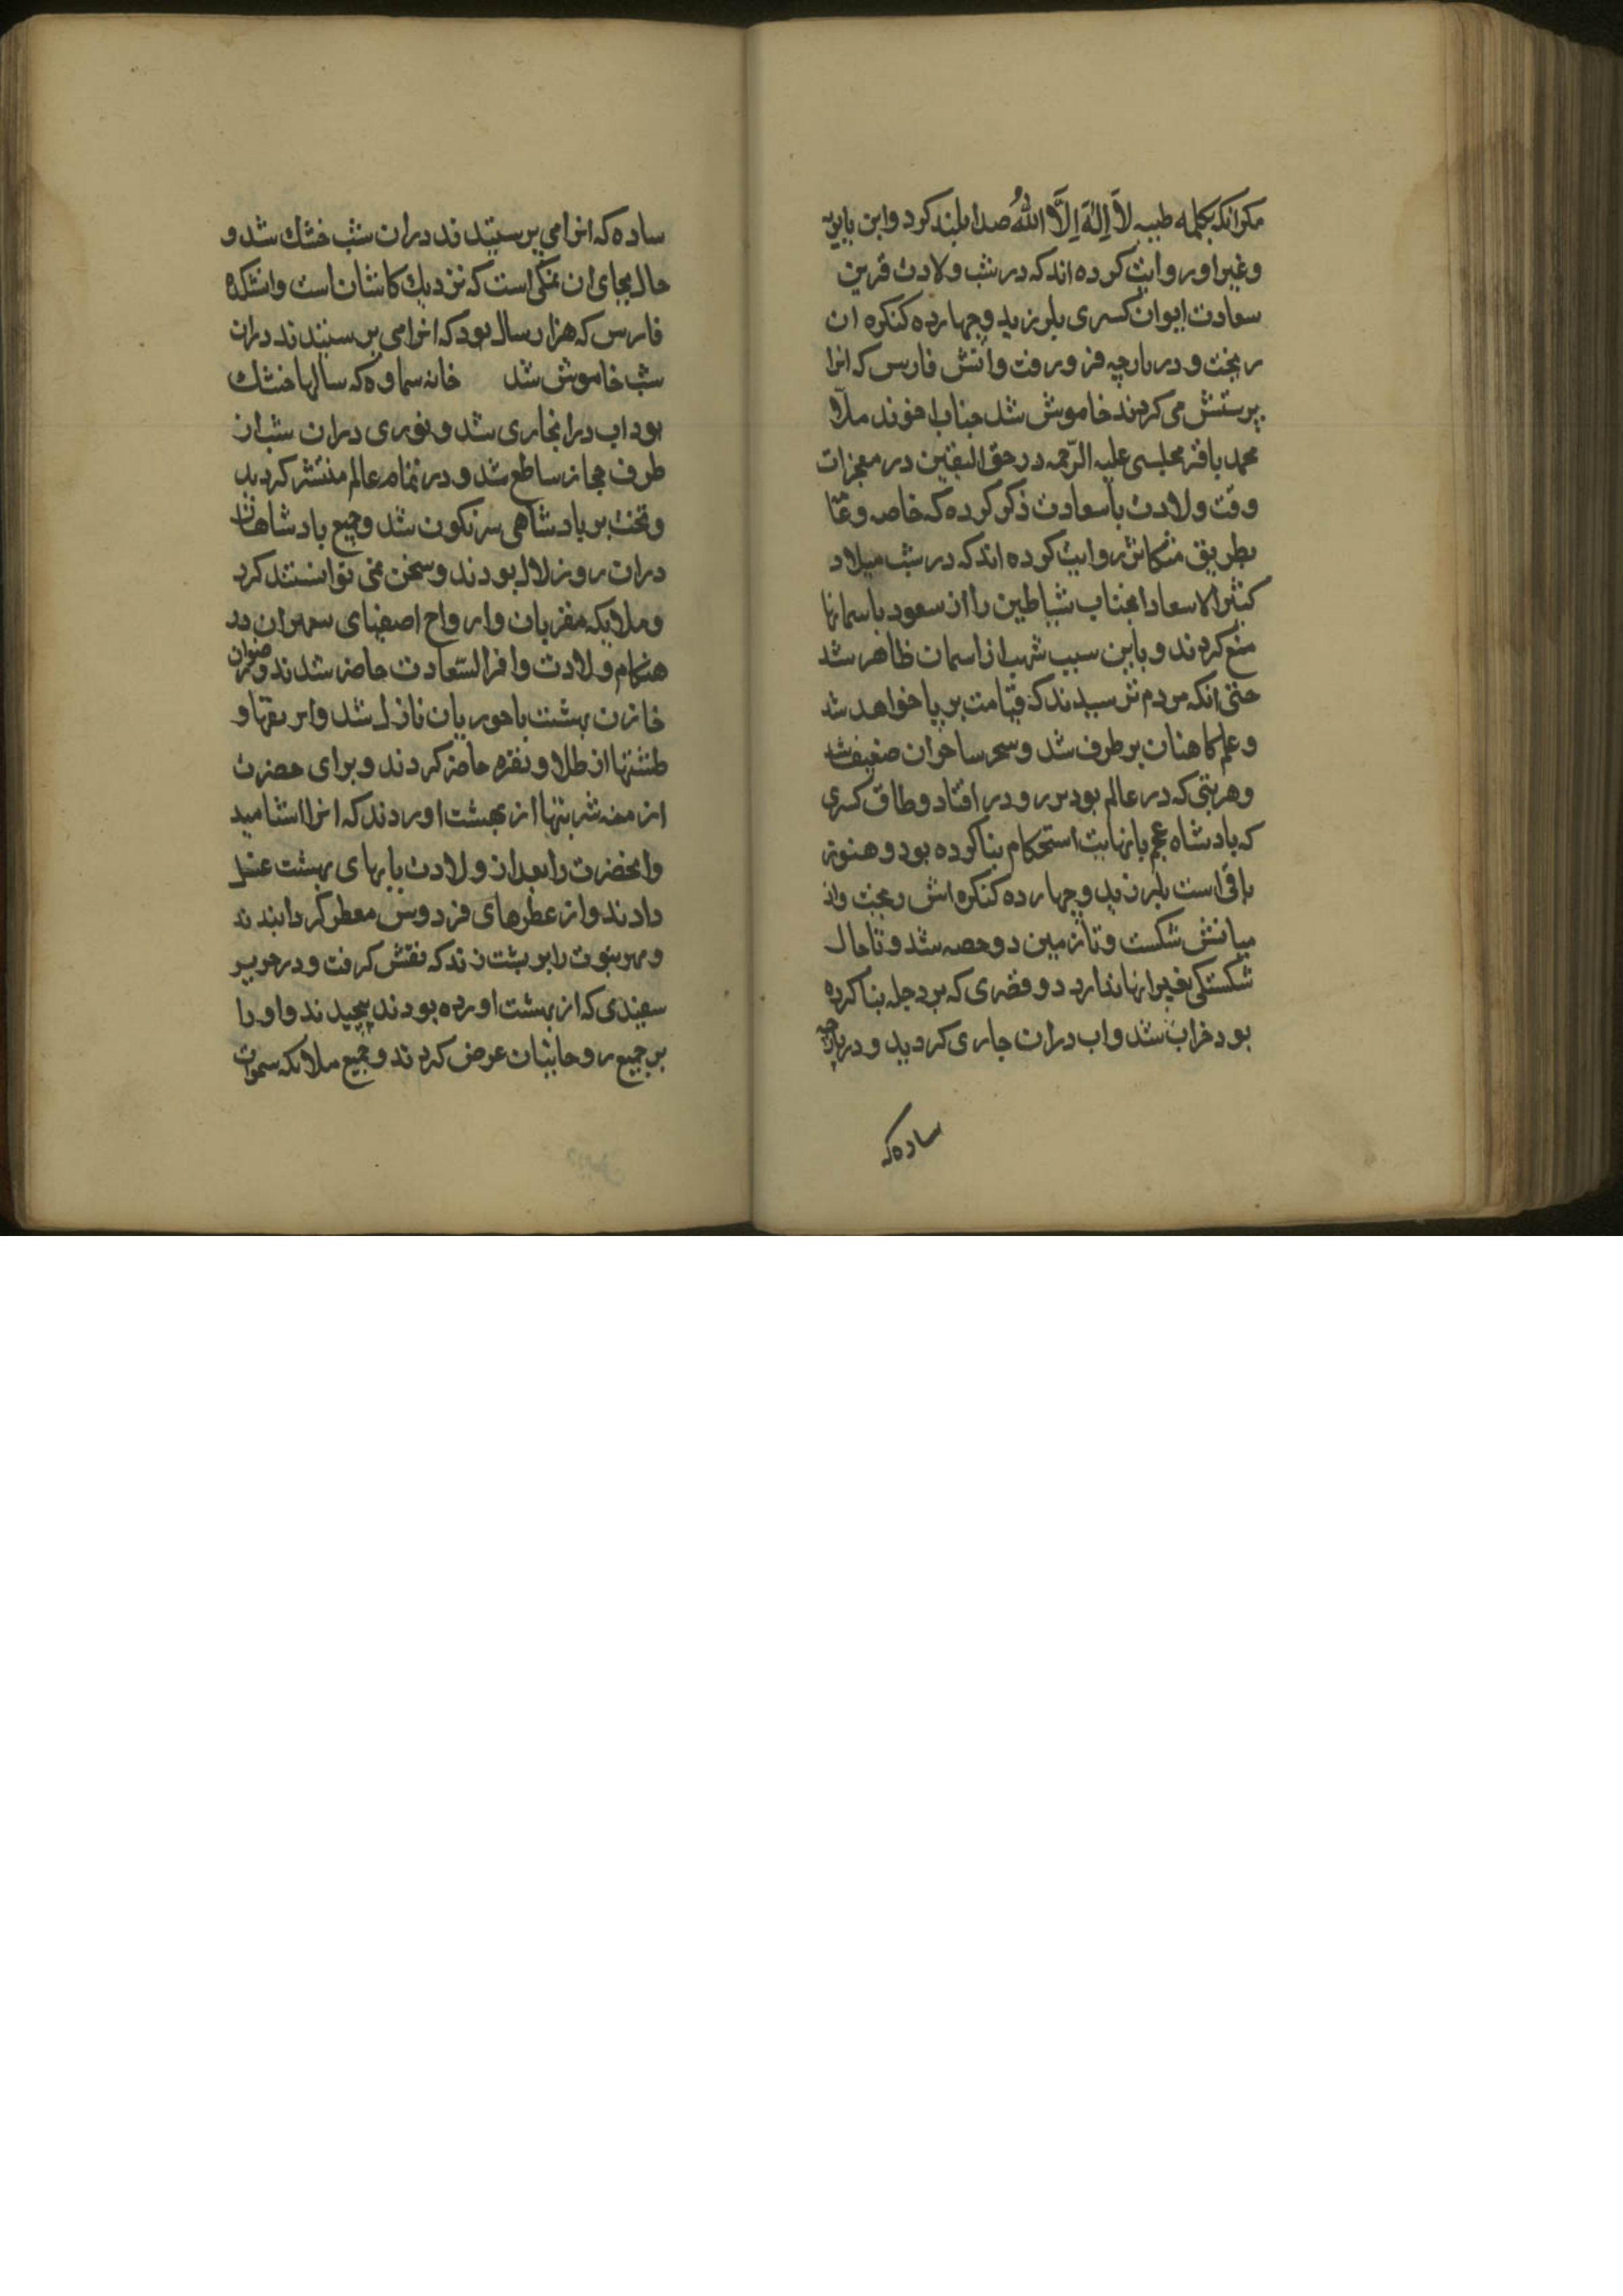 مکر انکه بکلمه طیبه لاَ اِلهَ اِلَّا اللهُ صدا بلند کرد و ابن بابویه
و غیر او روایت کرده اند که در شب ولادت قرین
سعادت ایوان کسری بلرزید و چهارده کنکره ان
ریخت و دریارچه فرو رفت و اتش فارس که انرا
پرستش می کردند خاموش شد جناب اخوند ملا
محمد باقر مجلسی علیه الرّحمه در حق الیقین در معجزات
وقت ولادت با سعادت ذکر کرده که خاصه و عامّا
بطریق متکاثر روایت کرده اند که در شب میلاد
کثیر الاسعاد انجناب شیاطین را از سعود باسمانها
منع کردند و باین سبب شهب از اسمان ظاهر شد
حتی انکه مردم ترسیدند که قیامت بر پا خواهد شد
و علم کاهنان بر طرف شد و سحر ساحران ضعیف شد
و هر بتی که در عالم بود بر رو در افتاد و طاق کسری
که پادشاه عجم با نهایت استحکام بنا کرده بود و هنوز
باقی است بلرزید و چهارده کنکره اش ریخت و از
میانش شکست و تا زمین دو حصه شد و تا حال
شکستکی بغیر انها ندارد و قصری که بر دجله بنا کرده
بود خراب شد و اب دران جاری کردید و دریارچه
ساده که
ساده که انرا می پرستیدند دران شب خشك شد و
حال بجای ان نمکی است که نزدیك کاشان است و اتشکده
فارس که هزار سال بود که انرا می پرستیدند دران
شب خاموش شد خانه سماوه که سالها خشك
بود اب درانجاری شد و نوری دران شب از
طرف حجاز ساطع شد و در تمام عالم منتشر کردید
و تخت بر پادشاهی سرنکون شد و جمیع پادشاهان
دران روز لال بودند و سخن نمی توانستند کرد
و ملایکه مقربان و ارواح اصفیای پیغمبران در
هنکام ولادت وافر السّعادت حاضر شدند و رضوان
خازن بهشت با حوریان نازل شد و ابریقها و
طشتها از طلا و نقره حاضر کردند و برای حضرت
امنه شربتها از بهشت اوردند که انرا اشامید
و انحضرت را بعد از ولادت بابهای بهشت غسل
دادند و از عطرهای فردوس معطر کردانیدند
و مهر نبوت را بر پشت زدند که نقش کرفت و در حریر
سفیدی که از بهشت اورده بودند پیچیدند و او را
بر جمیع روحانیان عرض کردند و جمیع ملائکه سموات